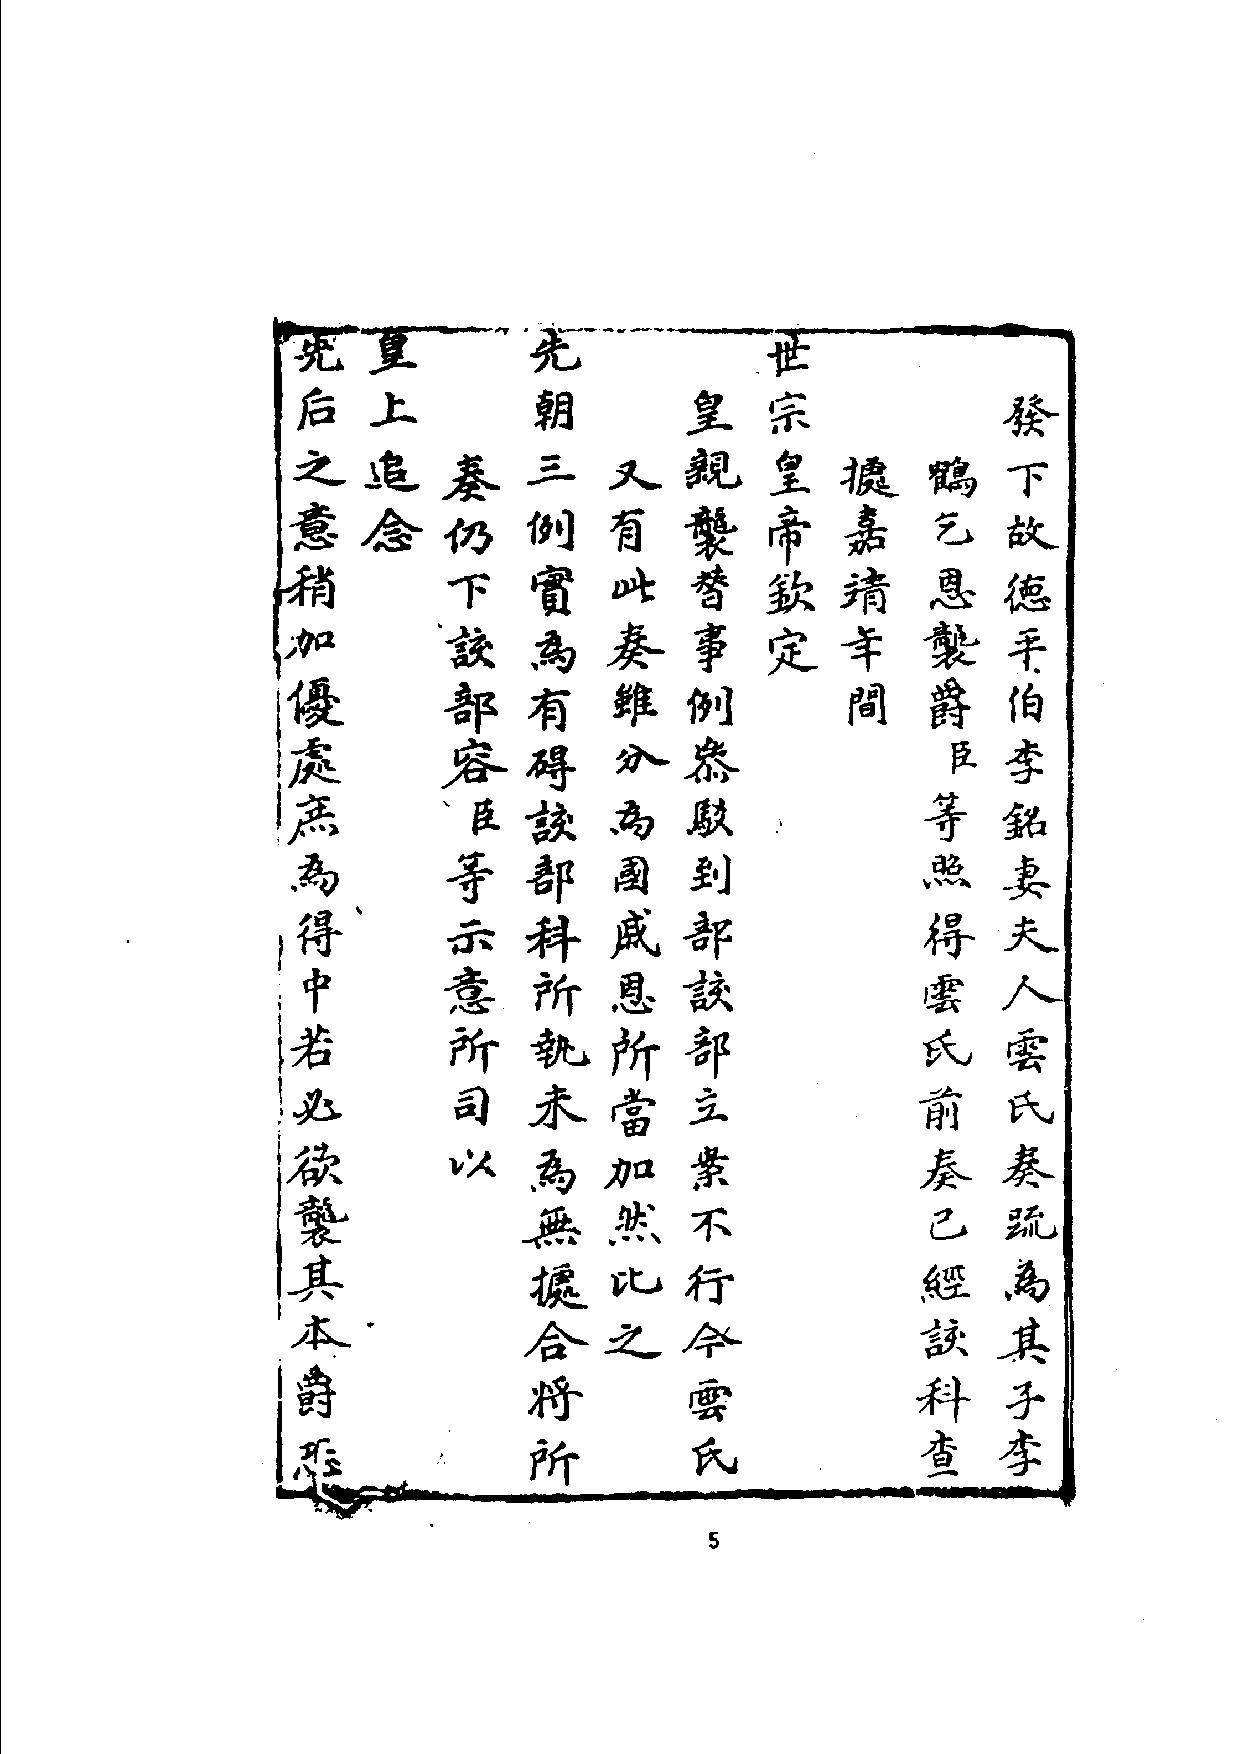 發下故德平伯李銘妻夫人雲氏奏疏為其子李
鶴乞恩襲爵臣等照得雲氏前奏已經該科查
據嘉靖年間
世宗皇帝欽定
皇親襲替事例叅駁到部該部立案不行今雲氏
又有此奏雖分為國戚恩所當加然比之
先朝三例實為有碍該部科所執未為無據合將所
奏仍下該部容臣等示意所司以
皇上追念
先后之意稍加優處庶為得中若必欲襲其本爵恐
5